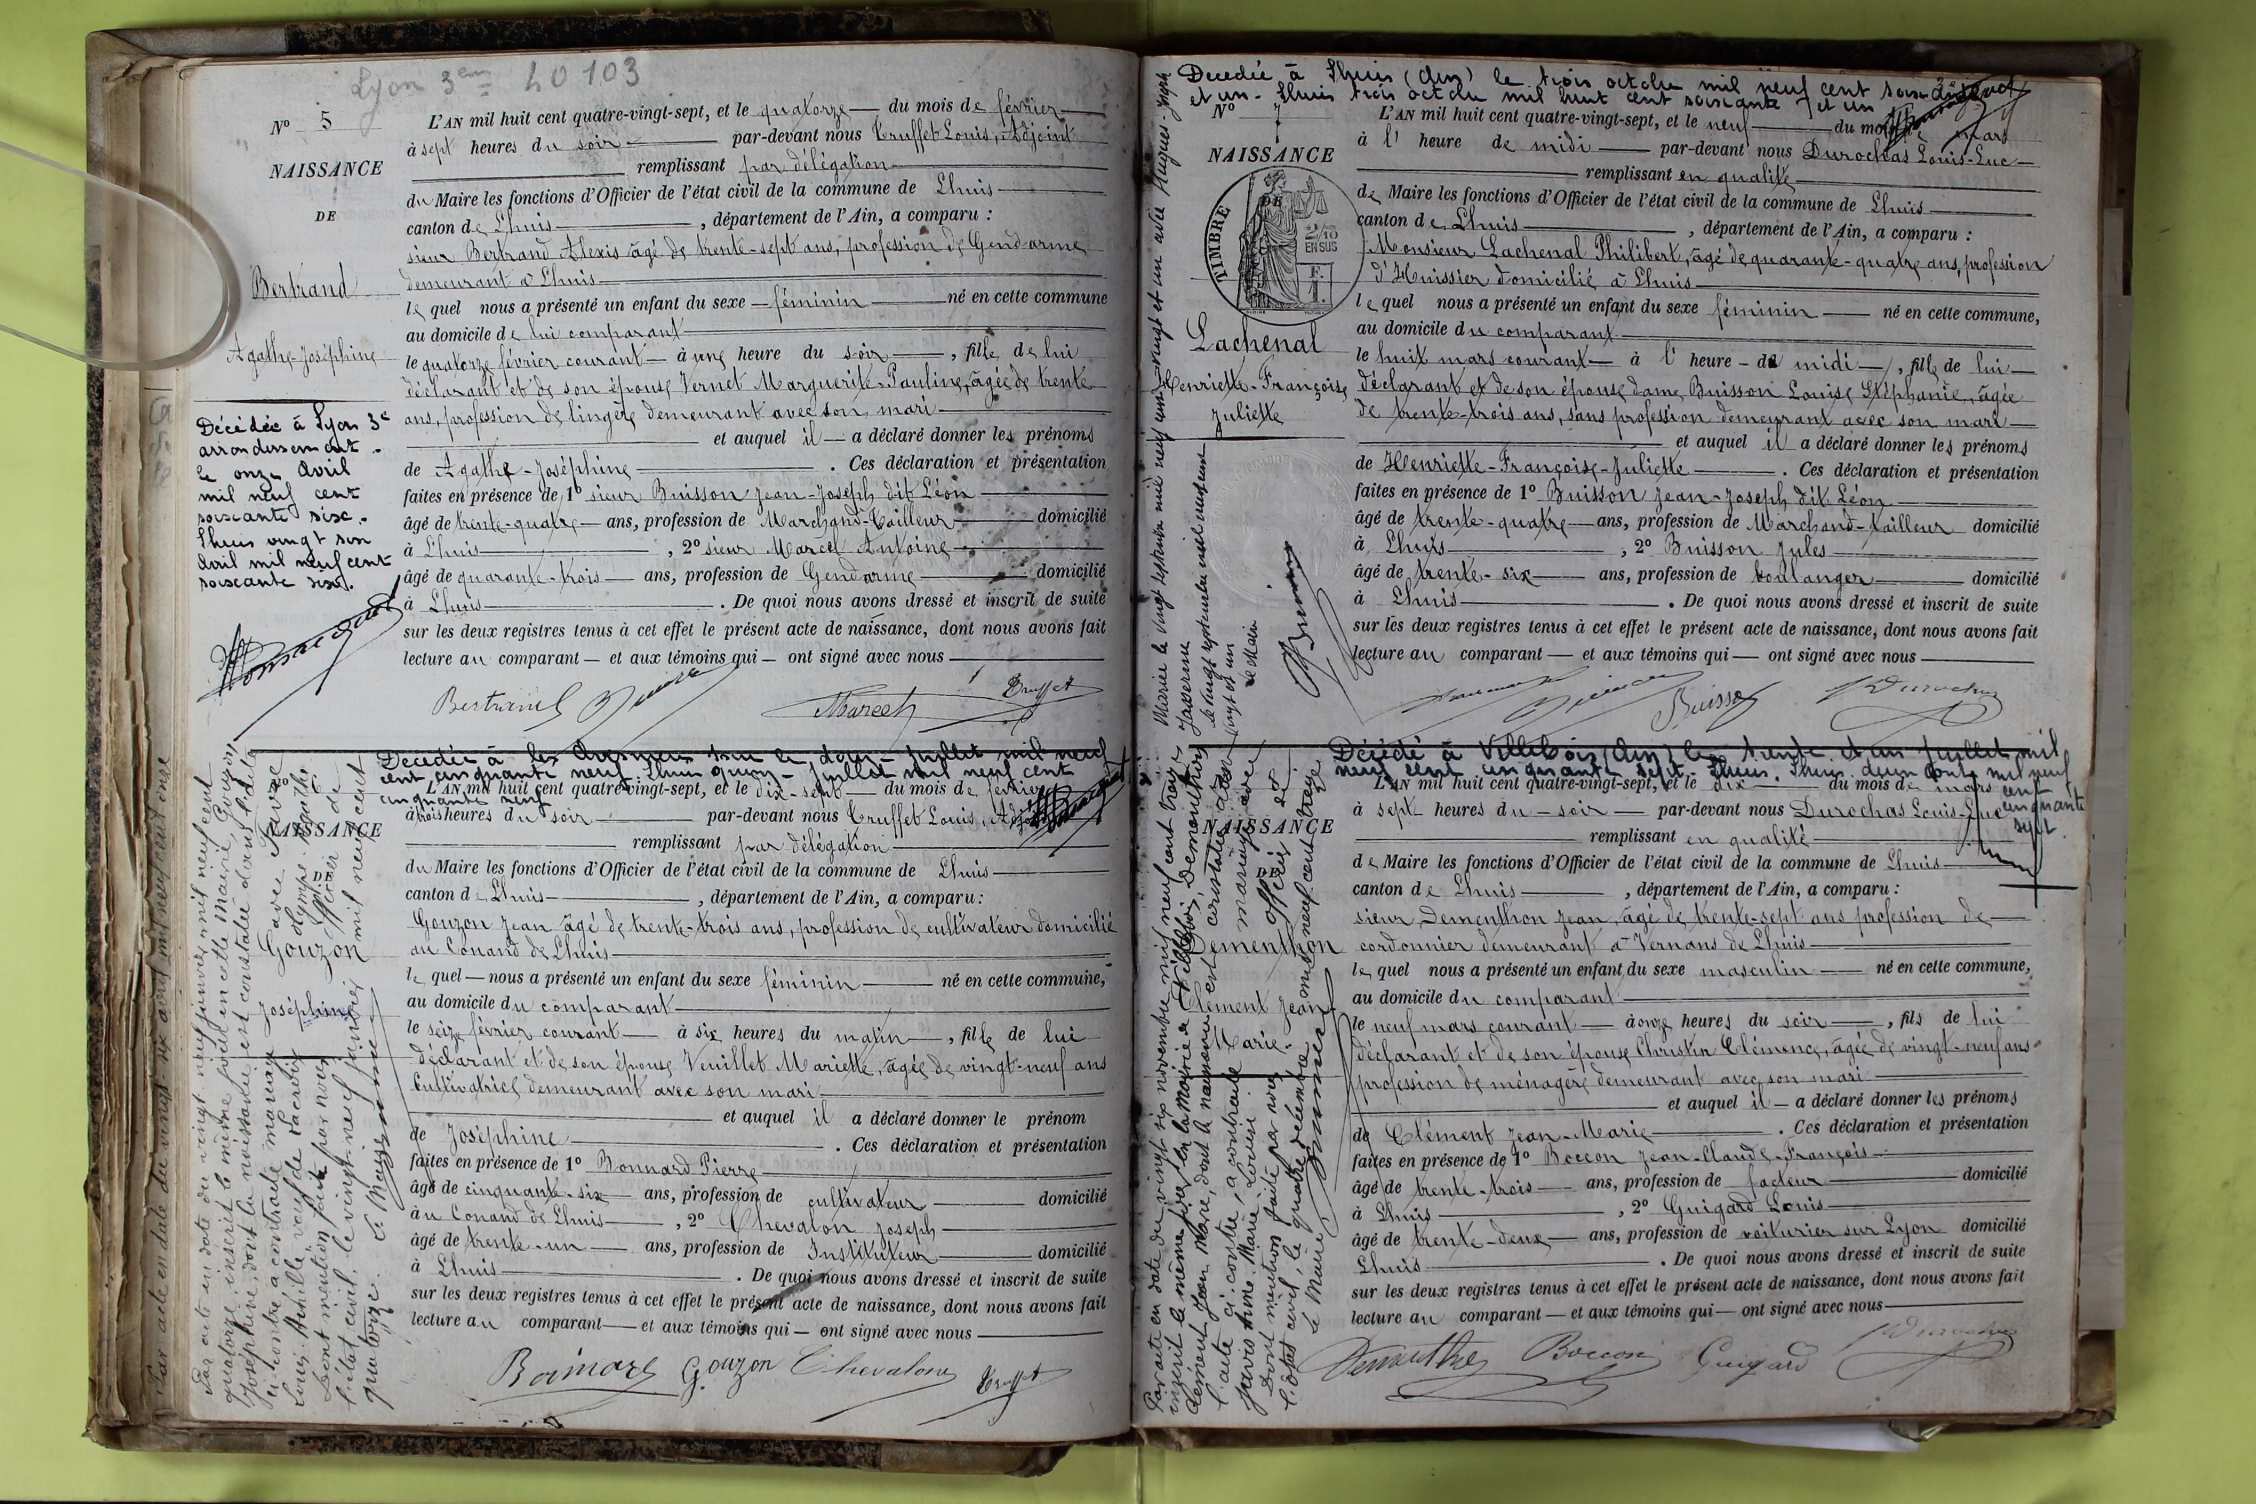 Lyon 3em 40103
N° 5
NAISSANCE
DE
Bertrand
Agathe-Joséphine
Décédée à Lyon 3e
arrondissement.
le onze Avril
mil neuf cent
soixante six.
Lhuis vingt son
Avril mil neuf cent
soixante six.
L'AN mil huit cent quatre-vingt-sept, et le quatorze du mois de février
à sept heures du soir par-devant nous Truffet Louis, Adjoint
remplissant par délégation
du Maire les fonctions d'Officier de l'état civil de la commune de Lhuis
canton de Lhuis, département de l'Ain, a comparu :
sieur Bertrand Alexis âgé de trente-sept ans, profession de Gendarme
demeurant à Lhuis
lequel nous a présenté un enfant du sexe féminin né en cette commune
au domicile de lui comparant
le quatorze février courant à une heure du soir, fille de lui
déclarant et de son épouse Vernet Marguerite-Pauline, âgée de trente
ans, profession de lingère demeurant avec son mari
et auquel il a déclaré donner les prénoms
de Agathe-Joséphine. Ces déclaration et présentation
faites en présence de 1° sieur Buisson Jean-Joseph dit Léon
âgé de trente-quatre ans, profession de Marchand-Tailleur domicilié
à Lhuis, 2° sieur Marcel Antoine
âgé de quarante-trois ans, profession de Gendarme domicilié
à Lhuis. De quoi nous avons dressé et inscrit de suite
sur les deux registres tenus à cet effet le présent acte de naissance, dont nous avons fait
lecture au comparant et aux témoins qui ont signé avec nous
Bertrand Marcel Truffet
Décédée à les Avenières Isère le douze juillet mil neuf
cent cinquante neuf. Lhuis quinze juillet mil neuf cent
cinquante neuf
N° 6
NAISSANCE
DE
Gouzon
Joséphine
L'AN mil huit cent quatre-vingt-sept, et le dix-sept du mois de février
à trois heures du soir par-devant nous Truffet Louis, Adjoint
remplissant par délégation
du Maire les fonctions d'Officier de l'état civil de la commune de Lhuis
canton de Lhuis, département de l'Ain, a comparu :
Gouzon Jean âgé de trente-trois ans, profession de cultivateur domicilié
au Conand de Lhuis
lequel nous a présenté un enfant du sexe féminin né en cette commune,
au domicile du comparant
le seize février courant à six heures du matin, fille de lui
déclarant et de son épouse Vuillet Mariette, âgée de vingt-neuf ans
Cultivatrice demeurant avec son mari
et auquel il a déclaré donner le prénom
de Joséphine. Ces déclaration et présentation
faites en présence de 1° Bonnard Pierre
âgé de cinquante-six ans, profession de cultivateur domicilié
au Conand de Lhuis, 2° Chevalon Joseph
âgé de trente-un ans, profession de Instituteur domicilié
à Lhuis. De quoi nous avons dressé et inscrit de suite
sur les deux registres tenus à cet effet le présent acte de naissance, dont nous avons fait
lecture au comparant et aux témoins qui ont signé avec nous
Gouzon Chevalon Truffet
Par acte en date du vingt neuf janvier mil neuf cent
quatorze, inscrit le même jour en cette mairie, Gouzon
Joséphine, dont la naissance est constatée dans l'acte
ci-contre a contracté mariage avec Favre
Louis Achille veuf de Lacroix Olympe Agathe.
Dont mention faite par nous Officier de
l'état civil, le vingt-neuf janvier mil neuf cent
quatorze. Le Maire
Par acte en date du vingt-six avril mil neuf cent onze
Décédée à Lhuis (Ain) le trois octobre mil neuf cent soixante
et un - Lhuis trois octobre mil huit cent soixante et un
N° 7
NAISSANCE
DE
TIMBRE
2/10
EN SUS
F.
1.
Lachenal
Henriette-Françoise
Juliette
L'AN mil huit cent quatre-vingt-sept, et le neuf du mois de mars
à l'heure de midi par-devant nous Durochas Louis-Luc
remplissant en qualité
de Maire les fonctions d'Officier de l'état civil de la commune de Lhuis
canton de Lhuis, département de l'Ain, a comparu :
Monsieur Lachenal Philibert, âgé de quarante-quatre ans, profession
d'Huissier domicilié à Lhuis
lequel nous a présenté un enfant du sexe féminin né en cette commune,
au domicile du comparant
le huit mars courant à l'heure de midi, fille de lui
déclarant et de son épouse dame Buisson Louise Stéphanie, âgée
de trente-trois ans, sans profession demeurant avec son mari
et auquel il a déclaré donner les prénoms
de Henriette-Françoise-Juliette. Ces déclaration et présentation
faites en présence de 1° Buisson Jean-Joseph dit Léon
âgé de trente-quatre ans, profession de Marchand-tailleur domicilié
à Lhuis, 2° Buisson Jules
âgé de trente-six ans, profession de boulanger domicilié
à Lhuis. De quoi nous avons dressé et inscrit de suite
sur les deux registres tenus à cet effet le présent acte de naissance, dont nous avons fait
lecture au comparant et aux témoins qui ont signé avec nous
Buisson Durochas
Mariée le vingt septembre mil neuf cent vingt et un avec Hugues-Joseph
le vingt septembre mil neuf cent
vingt et un
Le Maire
Décédé à Villebois (Ain) le trente et un juillet mil
neuf cent cinquante sept. Lhuis deux août mil neuf
cent
cinquante
sept.
NAISSANCE
DE
Dementhon
Clément Jean
Marie
L'AN mil huit cent quatre-vingt-sept, et le dix du mois de mars
à sept heures du soir par-devant nous Durochas Louis-Luc
remplissant en qualité
de Maire les fonctions d'Officier de l'état civil de la commune de Lhuis
canton de Lhuis, département de l'Ain, a comparu :
sieur Dementhon Jean, âgé de trente-sept ans profession de
cordonnier demeurant à Vernans de Lhuis
lequel nous a présenté un enfant du sexe masculin né en cette commune,
au domicile du comparant
le neuf mars courant à onze heures du soir, fils de lui
déclarant et de son épouse Christin Clémence, âgée de vingt-neuf ans
profession de ménagère demeurant avec son mari
et auquel il a déclaré donner les prénoms
de Clément Jean-Marie. Ces déclaration et présentation
faites en présence de 1° Boccon Jean-Claude-François
âgé de trente-trois ans, profession de facteur domicilié
à Lhuis, 2° Guigard Louis
âgé de trente-deux ans, profession de voiturier sur Lyon domicilié
Lhuis. De quoi nous avons dressé et inscrit de suite
sur les deux registres tenus à cet effet le présent acte de naissance, dont nous avons fait
lecture au comparant et aux témoins qui ont signé avec nous
Dementhon Boccon Guigard Durochas
Par acte en date du vingt six novembre mil neuf cent treize
inscrit le même jour en la mairie de Villebois, Dementhon
Clément Jean Marie, dont la naissance est constatée dans
l'acte ci-contre, a contracté mariage avec
Dont mention faite par nous Officier de
l'état civil, le quatre décembre mil neuf cent treize
Le Maire